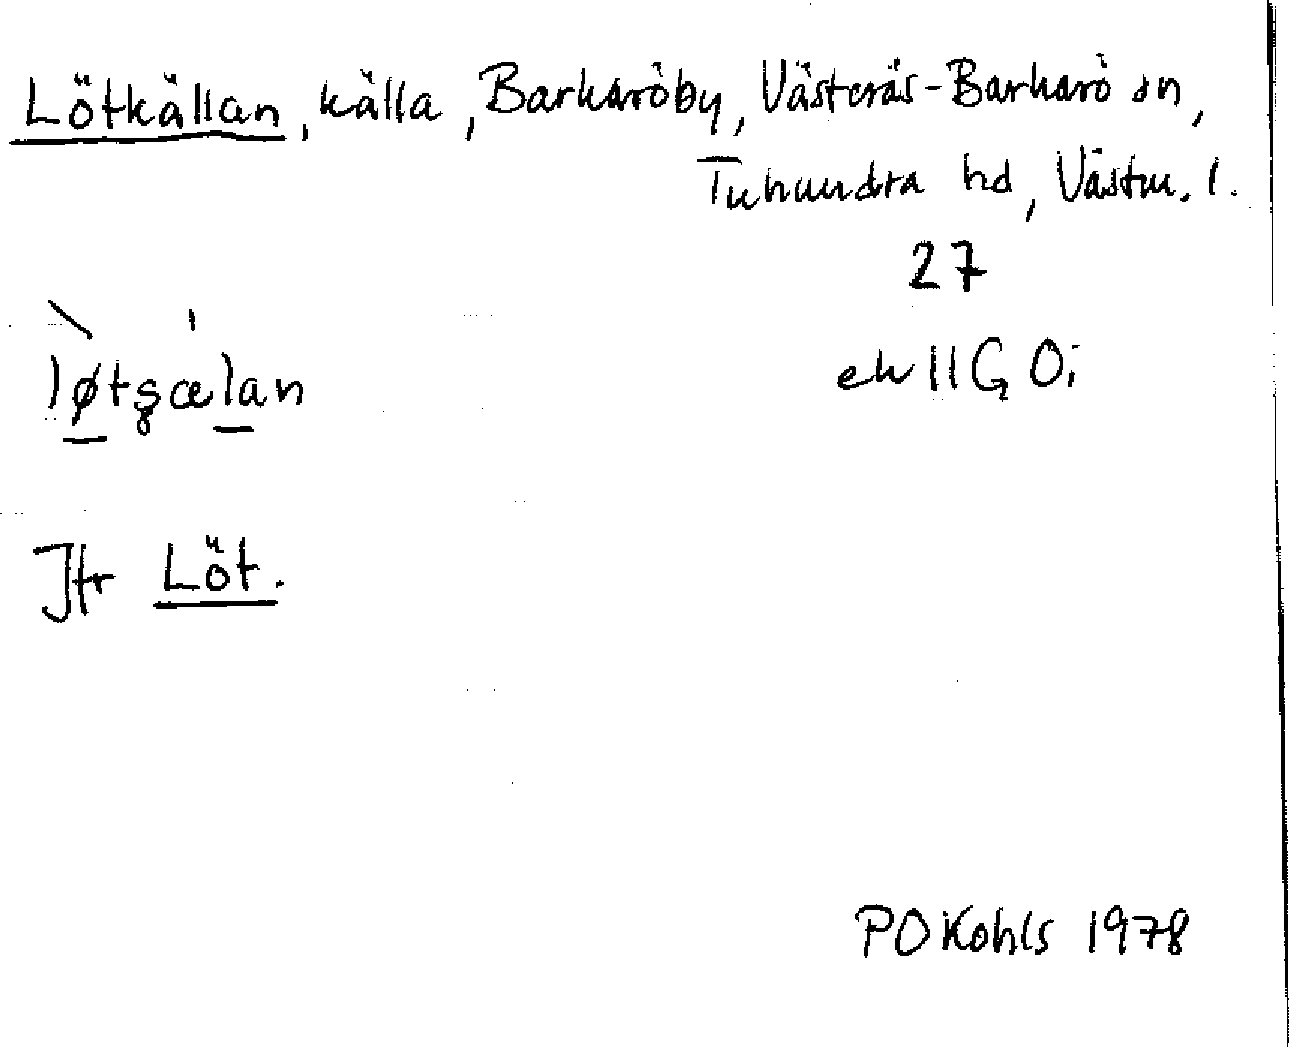 Lötkällan, källa, Barkaröby, Västerås-Barkarö sn,
Tuhundra hd, Västm. l.
27
ek 11G 0i
lø̱tʂæḻan
Jfr Löt.
PO Kohls 1978